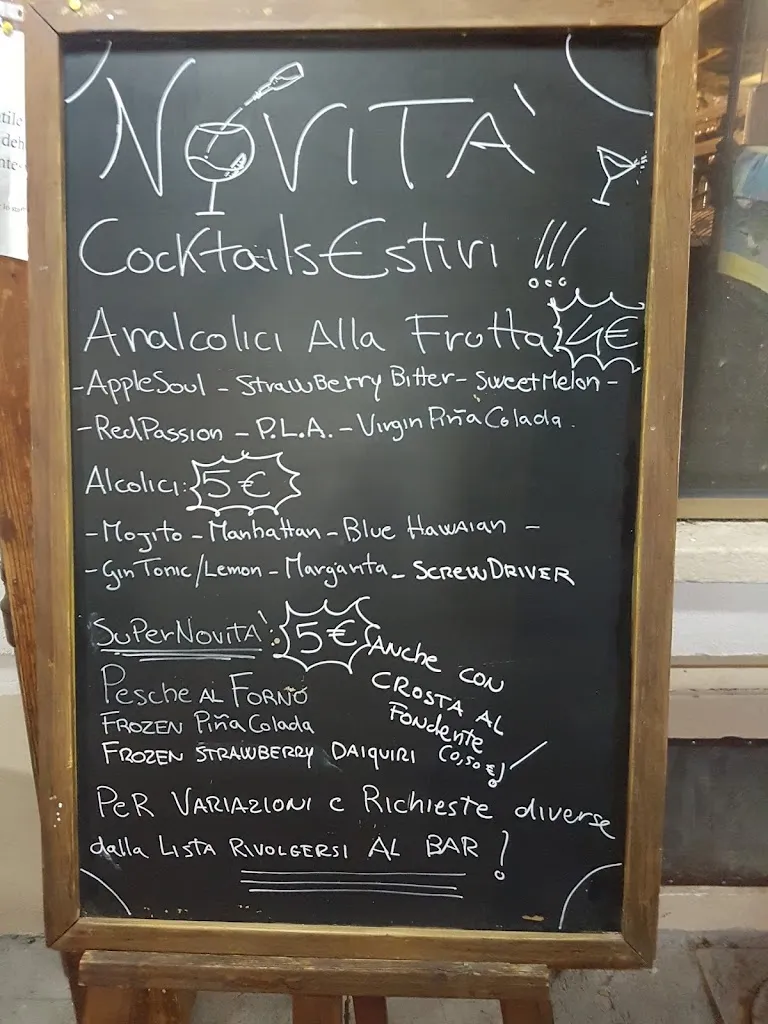 NOVITÀ
Cocktails Estivi !!!
Analcolici Alla Frutta 4€
- AppleSoul - StrawBerry Bitter - SweetMelon -
- RedPassion - P.L.A. - Virgin Piña Colada.
Alcolici: 5€
- Mojito - Manhattan - Blue Hawaian -
- Gin Tonic/Lemon - Margarita - SCREWDRIVER
SuPerNovità: 5€
ANCHE CON
CROSTA AL
Fondente
(0,50 €)!
Pesche AL FORNO
FROZEN Piña Colada
FROZEN STRAWBERRY DAIQUIRI
PeR VARIAZIONI e Richieste diverse
dalla LISTA RIVOLGERSI AL BAR !